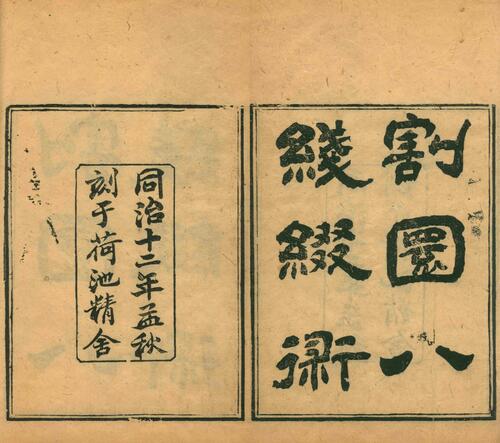 割圜八
綫綴術
同治十二年孟秋
刻于荷池精舍